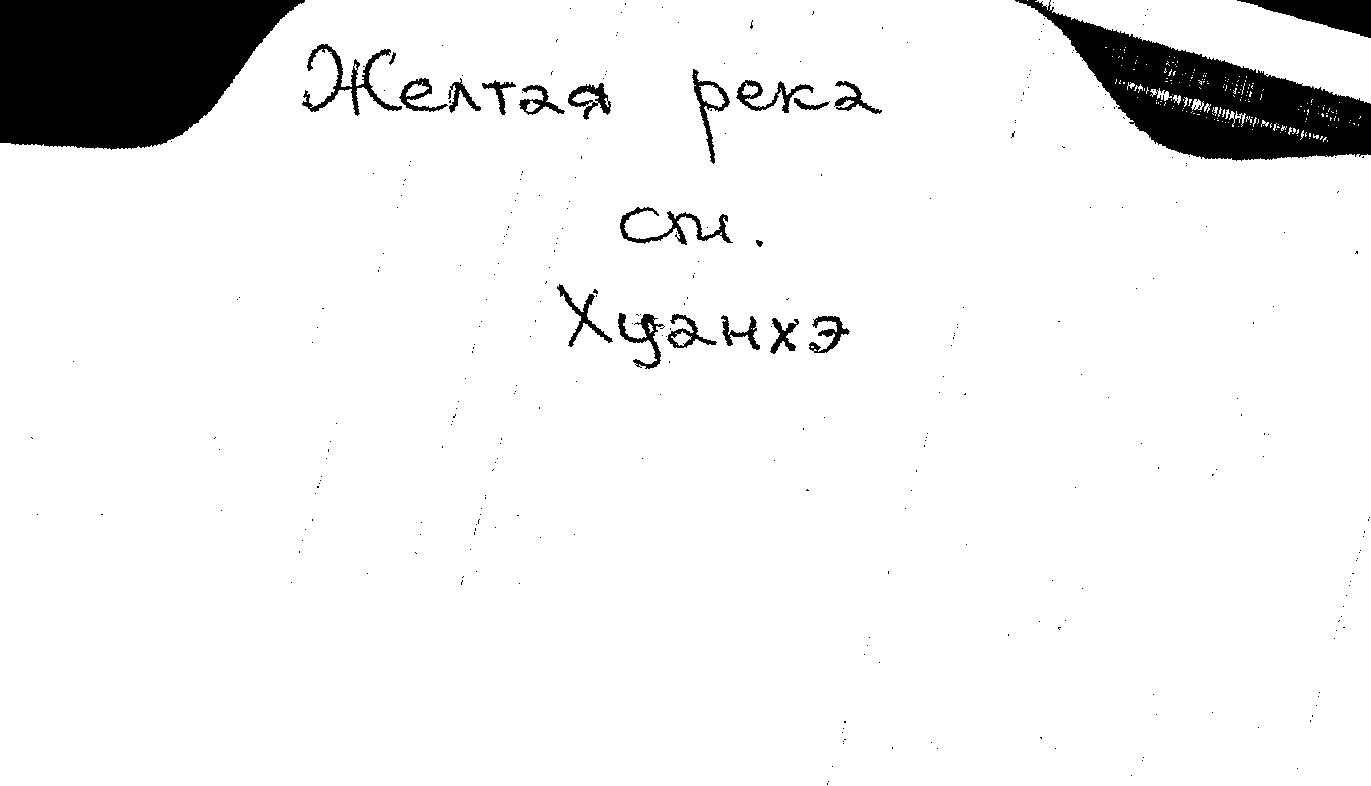 Желтая река
см.
Хуанхэ